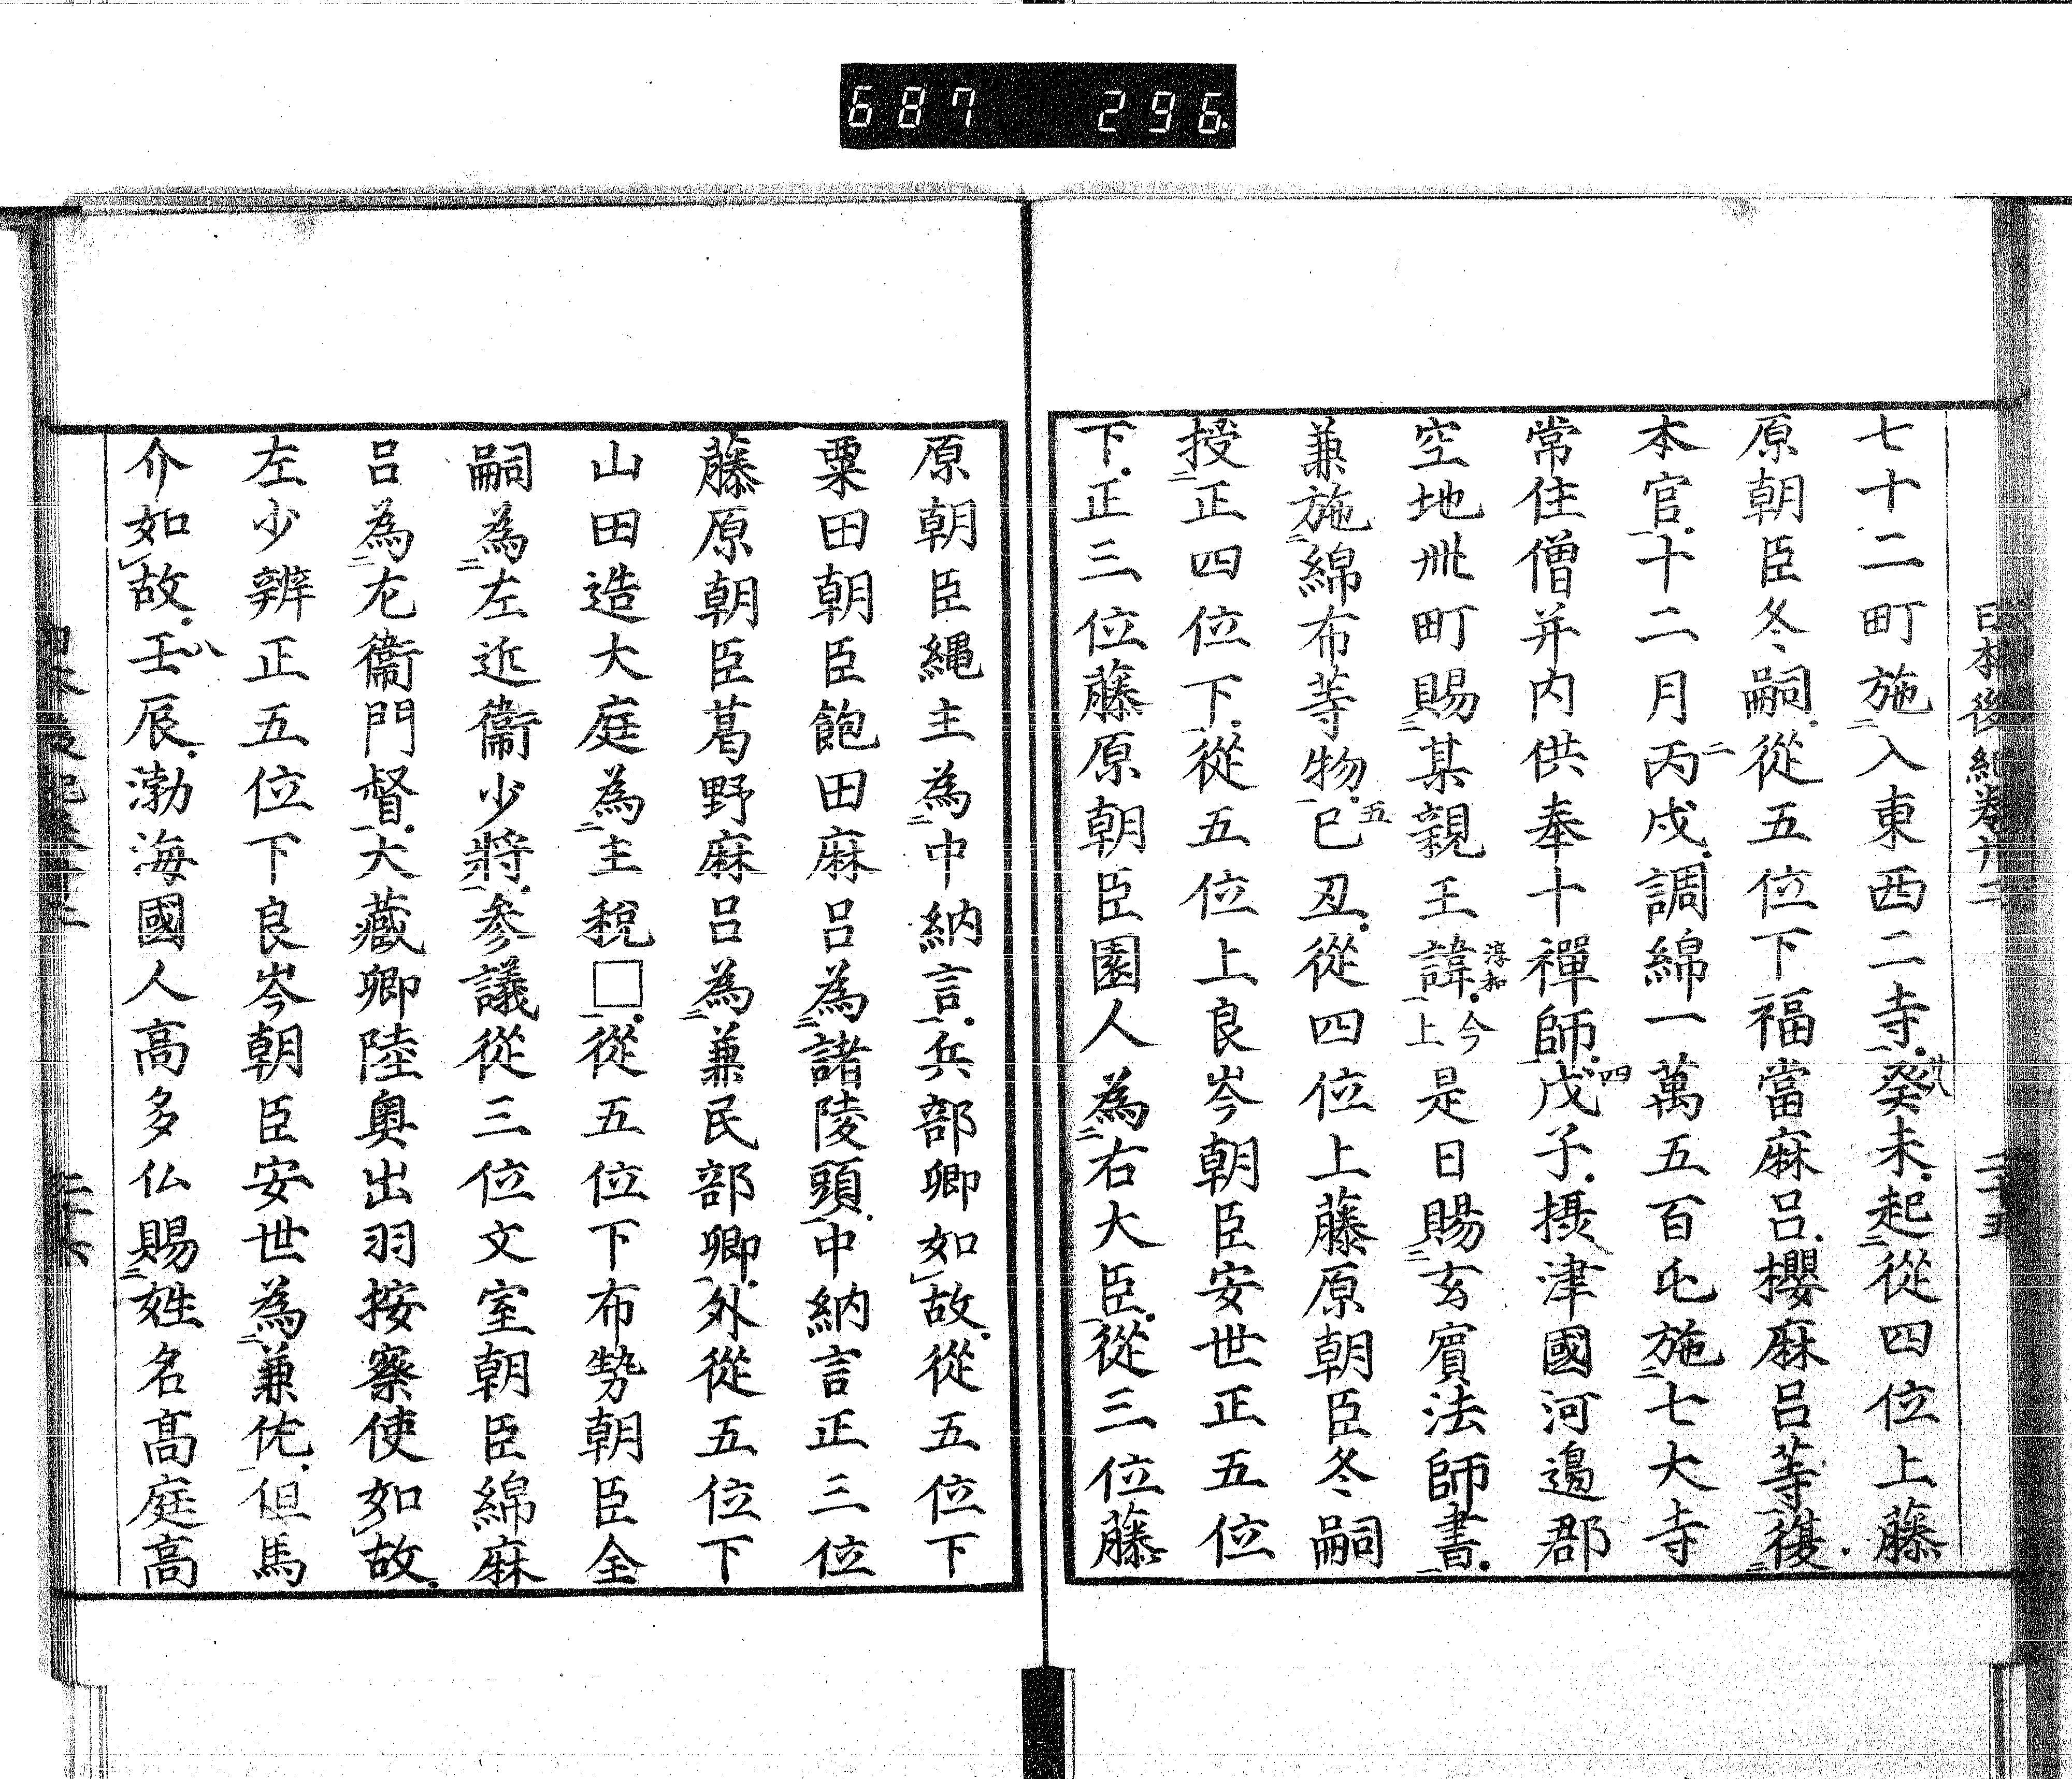 687 296
日本後紀卷廿二 二十五
七十二町施二入東西二寺一癸未廿八起二從四位上藤
原朝臣冬嗣從五位下福當麻呂櫻麻呂等一復二
本官一十二月丙戌二調綿一萬五百屯施二七大寺
常住僧并内供奉十禪師一戊子四摂津國河邊郡
空地卅町賜二某親王諱淳和一今上是日賜二玄賓法師書一
兼施二綿布等物一己丑五從四位上藤原朝臣冬嗣
授二正四位下一從五位上良岑朝臣安世正五位
下正三位藤原朝臣園人為二右大臣一從三位藤
原朝臣縄主為二中納言一兵部卿如故從五位下
粟田朝臣飽田麻呂為二諸陵頭一中納言正三位
藤原朝臣葛野麻呂為二兼民部卿一外從五位下
山田造大庭為二主税□一從五位下布勢朝臣全
嗣為二左近衞少將一参議從三位文室朝臣綿麻
呂為二左衞門督一大藏卿陸奥出羽按察使如故
左少辨正五位下良岑朝臣安世為二兼佐一但馬
介如故壬辰八渤海國人高多仏賜二姓名高庭高
二十六